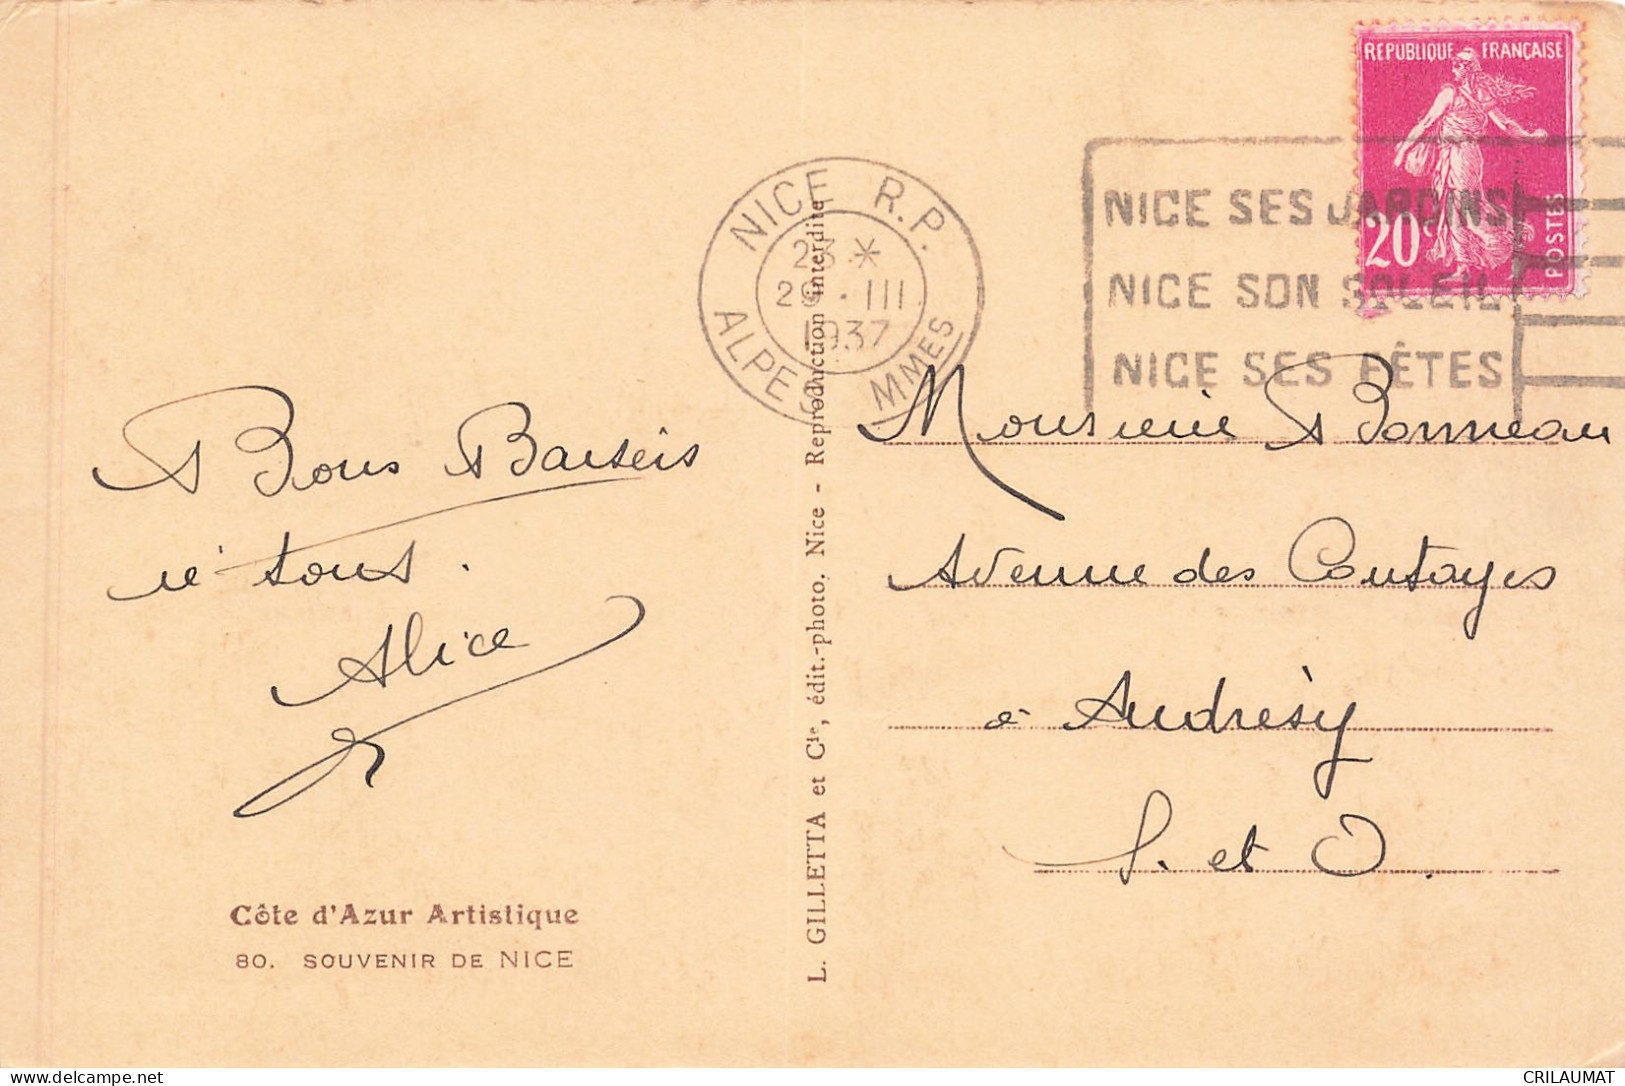 REPUBLIQUE FRANÇAISE
20c
POSTES
NICE R.P.
23 *
29 · III
1937
ALPES MMES
NICE SES JARDINS
NICE SON SOLEIL
NICE SES FÊTES
Bons Baisers
à tous.
Alice
Monsieur Bonneau
Avenue des Coutayes
à Andrésy
S. et O.
Côte d'Azur Artistique
80. SOUVENIR DE NICE
L. GILLETTA et Cie, édit.-photo, Nice - Reproduction interdite
CRILAUMAT